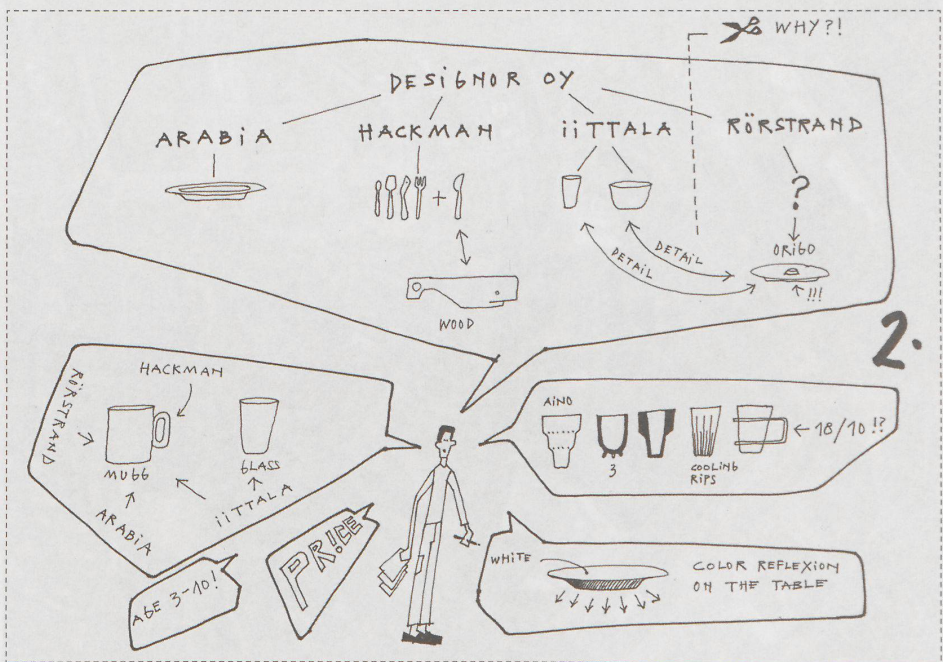 WHY?!
DESiGNOR OY
ARABiA
HACKMAN
iiTTALA
RÖRSTRAND
+
?
DETAIL
DETAIL
ORiGO
!!!
WOOD
2.
HACKMAN
RÖRSTRAND
MUGG
GLASS
ARABiA
iiTTALA
AiNO
3
COOLiNG
RiPS
18/10 !?
PR!CE
AGE 3-10!
WHiTE
COLOR REFLEXiON
ON THE TABLE